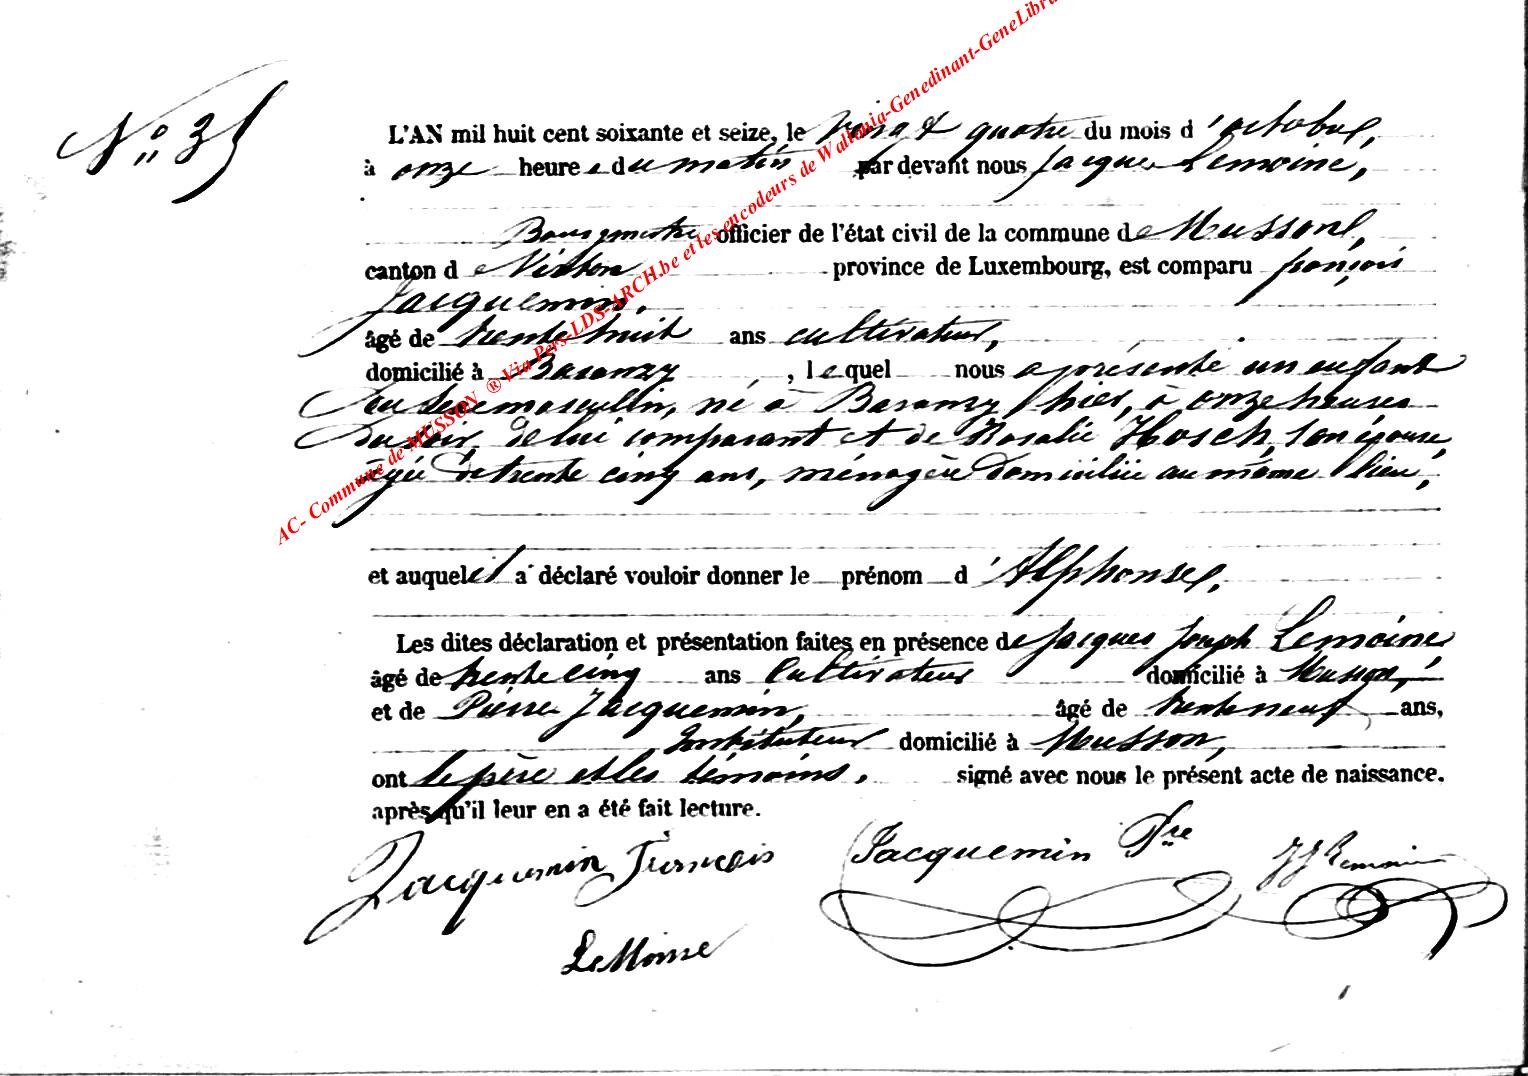 N° 35
L'AN mil huit cent soixante et seize, le vingt quatre du mois d'octobre,
à onze heures du matin par devant nous Jacques Lemoine,
Bourgmestre officier de l'état civil de la commune de Musson,
canton de Virton province de Luxembourg, est comparu françois
Jacquemin,
âgé de trente huit ans cultivateur,
domicilié à Baranzy, lequel nous a présenté un enfant
du sexe masculin, né à Baranzy hier, à onze heures
du soir, de lui comparant et de Rosalie Hosch, son épouse,
âgée de trente cinq ans, ménagère domiciliée au même lieu,
et auquel il a déclaré vouloir donner le prénom d'Alphonse.
Les dites déclaration et présentation faites en présence de Jacques Joseph Lemoine
âgé de trente cinq ans Cultivateur domicilié à Musson,
et de Pierre Jacquemin, âgé de trente neuf ans,
Instituteur domicilié à Musson,
ont le père et les témoins, signé avec nous le présent acte de naissance.
après qu'il leur en a été fait lecture.
Jacquemin François Jacquemin Pre JJ Lemoine
LeMoine
AC- Commune de MUSSON ® Via Pers-LDS-ARCH.be et les encodeurs de Wallonia-Genedinant-GeneLibra